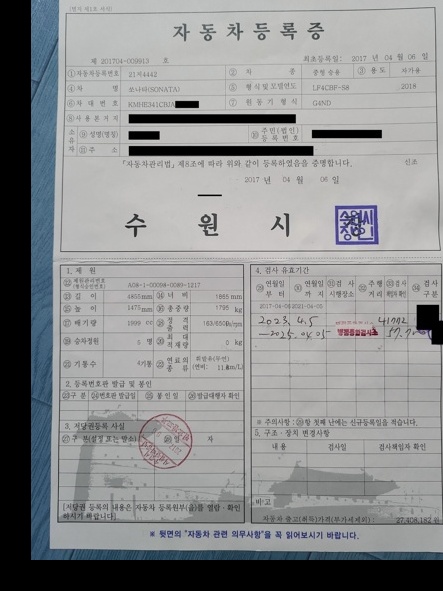 자동차등록증
제 201704-009913 호 최초등록일: 2017 년 04 월 06 일
①자동차등록번호 21저4442 ② 차 종 중형 승용 ③ 용도 자가용
④ 차 명 쏘나타(SONATA) ⑤ 형식 및 모델연도 LF4CBF-S8 2018
⑥ 차 대 번 호 KMHE341CBJA ⑦ 원 동 기 형 식 G4ND
⑧ 사 용 본 거 지
소유자 ⑨ 성명(명칭) ⑩ 주민(법인)등록번호
⑪ 주 소
「자동차관리법」 제8조에 따라 위와 같이 등록하였음을 증명합니다. 신조
2017 년 04 월 06 일
수 원 시 장
1. 제 원
⑫ 제원관리번호(형식승인번호) A08-1-00098-0089-1217
⑬ 길 이 4855mm ⑭ 너 비 1865 mm
⑮ 높 이 1475mm ⑯ 총중량 1795 kg
⑰ 배기량 1999 cc ⑱ 정격출력
⑲ 승차정원 5 명 ⑳ 최대적재량 0 kg
기통수 4기통 연료의 종류 휘발유(무연)
2. 등록번호판 발급 및 봉인
구 분 번호판 발급일 봉 인 일 발급대행자 확인
3. 저당권등록 사실
구 분(설정 또는 말소) 일 자
[저당권 등록의 내용은 자동차 등록원부(을)를 열람ㆍ확인하시기 바랍니다]
4. 검사 유효기간
연월일부터 연월일까지 검사시행장소 주행거리 검사책임자확인 검사구분
2017-04-06 2021-04-05
2023. 4.5 41772
-2025.04.05
※ 주의사항: 항 첫째 난에는 신규등록일을 적습니다.
5. 구조ㆍ장치 변경사항
내 용 검사일 검사책임자 확인
비고
자동차 출고(취득)가격(부가세제외): 27,408,182 원
※ 뒷면의 "자동차 관련 의무사항"을 꼭 읽어보시기 바랍니다.